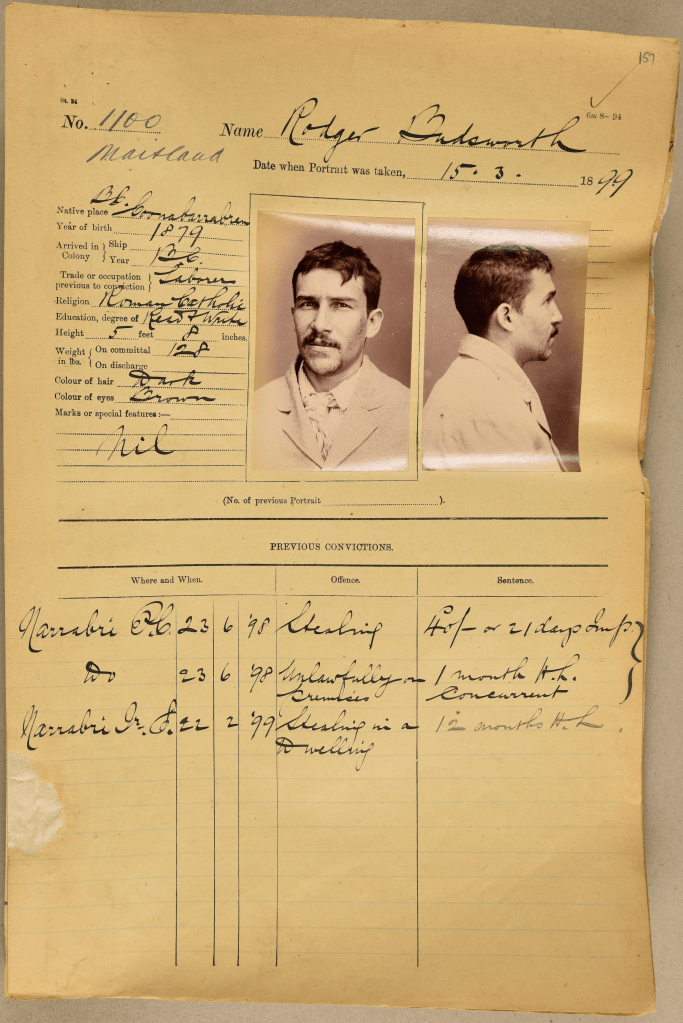 157
Sa. 94
6m 8-94
No. 1100 Name Rodger Budsworth
Maitland
Date when Portrait was taken, 15. 3. 1899
Native place B.C. Coonabarrabran
Year of birth 1879
Arrived in Colony { Ship
Year B.C.
Trade or occupation previous to conviction } Laborer
Religion Roman Catholic
Education, degree of Read & Write
Height 5 feet 8 inches.
Weight in lbs. { On committal 128
On discharge
Colour of hair Dark
Colour of eyes Brown
Marks or special features:—
Nil
(No. of previous Portrait ).
PREVIOUS CONVICTIONS.
Where and When. Offence. Sentence.
Narrabri P.C. 23 6 '98 Stealing 40/- or 21 days Imp.
Do 23 6 '98 Unlawfully on premises 1 month H.L. Concurrent
Narrabri Qr. S. 22 2 '99 Stealing in a Dwelling 12 months H.L.